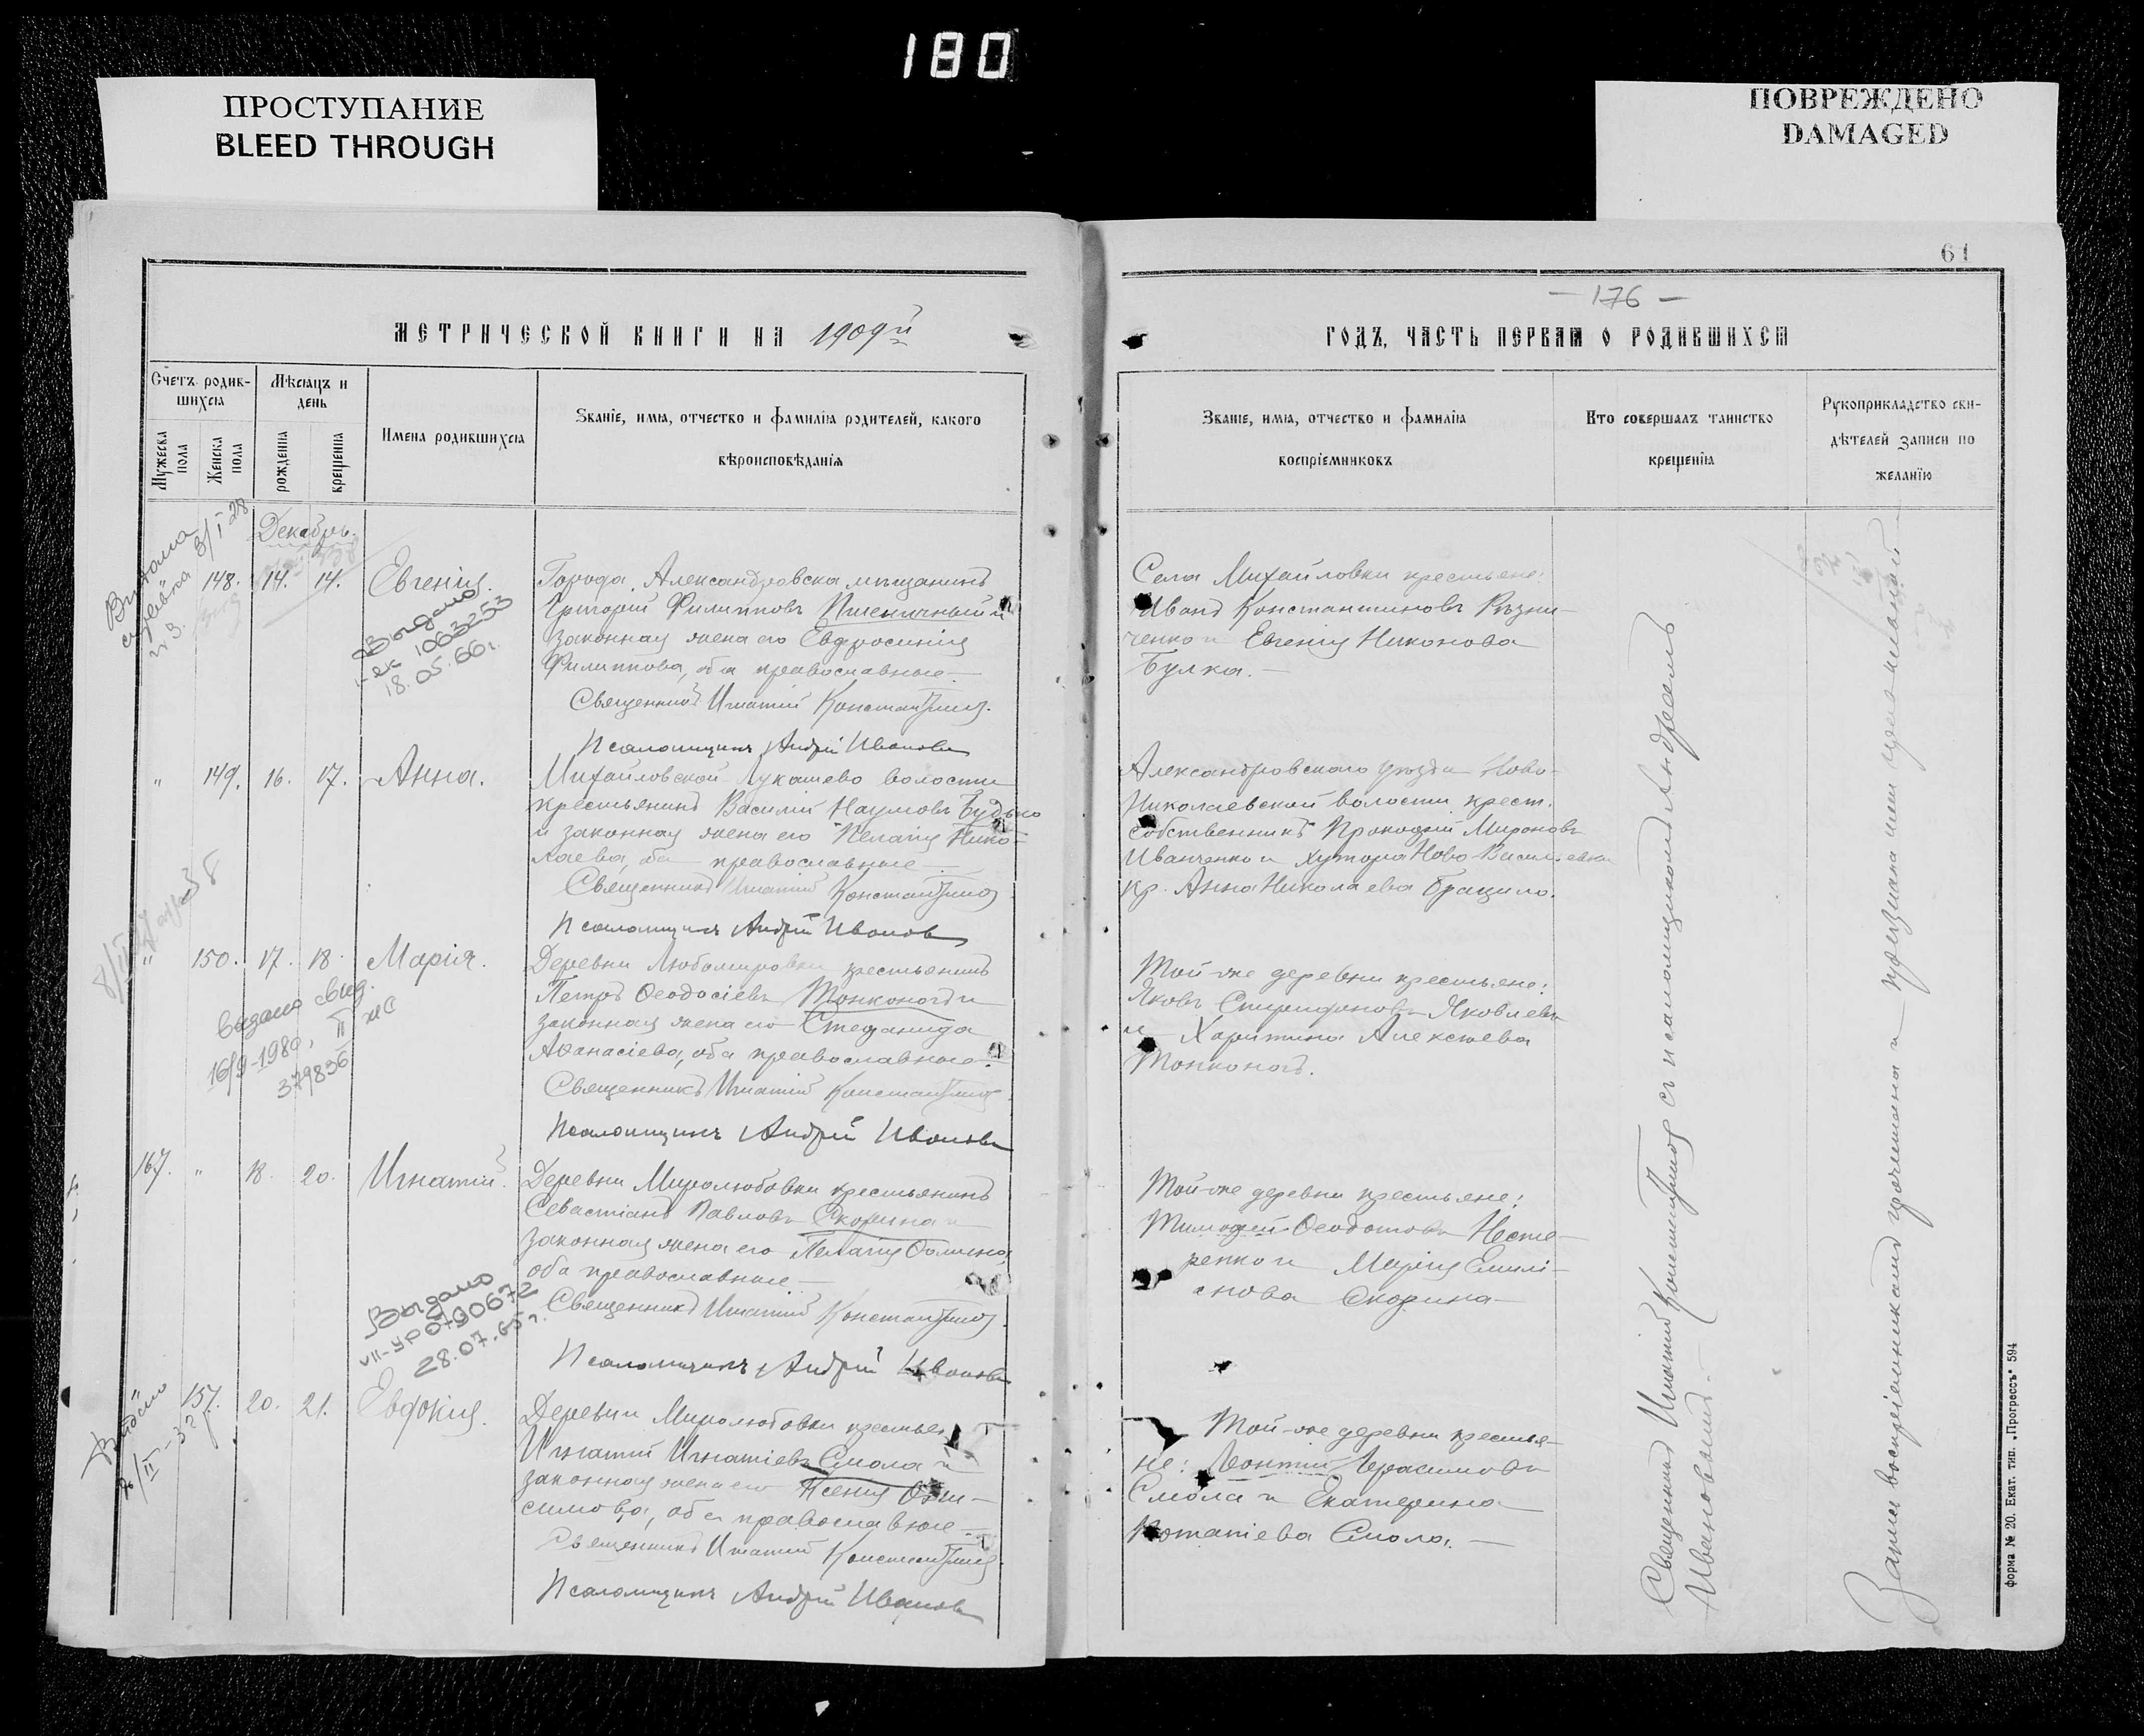 180
ПРОСТУПАНИЕ
BLEED THROUGH
ПОВРЕЖДЕНО
DAMAGED
61
— 176 —
МЕТРИЧЕСКОЙ КНИГИ НА 1909й
ГОДЪ, ЧАСТЬ ПЕРВАЯ О РОДИВШИХСЯ
Счетъ родив-
шихся
Мѣсяцъ и
день
Мужеска
пола
Женска
пола
рожденія
крещенія
Имена родившихся
Званіе, имя, отчество и фамилія родителей, какого
вѣроисповѣданія
Званіе, имя, отчество и фамилія
воспріемниковъ
Кто совершалъ таинство
крещенія
Рукоприкладство сви-
дѣтелей записи по
желанію
3/I 28
Декабрь.
148. 14. 14. Евгенія
Города Александровска мѣщанинъ
Григорій Филипповъ Пшеничный и
законная жена его Евфросинія
Филиппова, оба православные.—
Священникъ Игнатій
Псаломщикъ Андрей Ивановъ
Села Михайловки крестьяне:
Иванъ Константиновъ Рѣзни-
ченко и Евгенія Никонова
Булка.—
Выдано
1063253
18.05.66г.
" 149. 16. 17. Анна.
Михайловской Лукашево волости
крестьянинъ Василій Наумовъ Будько
и законная жена его Пелагія Нико-
лаева, оба православные—
Священникъ Игнатій
Псаломщикъ Андрей Ивановъ
Александровскаго уѣзда Ново-
Николаевской волости, крест.
собственникъ Прокофій Мироновъ
Иванченко и хутора Ново-Васильевки
кр. Анна Николаева Брацило.
" 150. 17. 18. Марія.
Деревни Любомировки крестьянинъ
Петръ Ѳеодосіевъ Тонконогъ и
законная жена его Стефанида
Аѳанасіева, оба православные.
Священникъ Игнатій
Псаломщикъ Андрей Ивановъ
Той-же деревни крестьяне:
Яковъ Спиридоновъ Яковлевъ
и Харитина Алексѣева
Тонконогъ.
Выдано свид.
16/9-1980, II ЖС
379836
167. " 18. 20. Игнатій.
Деревни Миролюбовки крестьянинъ
Севастіанъ Павловъ Скорина и
законная жена его Пелагія
оба православные—
Священникъ Игнатій
Псаломщикъ Андрей Ивановъ
Той-же деревни крестьяне:
Тимофей Ѳеодотовъ Несте-
ренко и Марія Емилі-
анова Скорина—
Выдано
VII-УР 0790672
28.07.65г.
" 151. 20. 21. Евдокія.
Деревни Миролюбовки крестьян
Игнатій Игнатіевъ Смола и
законная жена его Ксенія Они-
симова, оба православные—
Священникъ Игнатій
Псаломщикъ Андрей Ивановъ
Той-же деревни крестья-
не: Леонтій Герасимовъ
Смола и Екатерина
Игнатіева Смола.—
Священникъ Игнатій съ псаломщикомъ Андреемъ
Ивановымъ.—
Запись воспріемникамъ прочитана и признана ими правильной—
форма № 20. Екат. тип. „Прогрессъ" 594